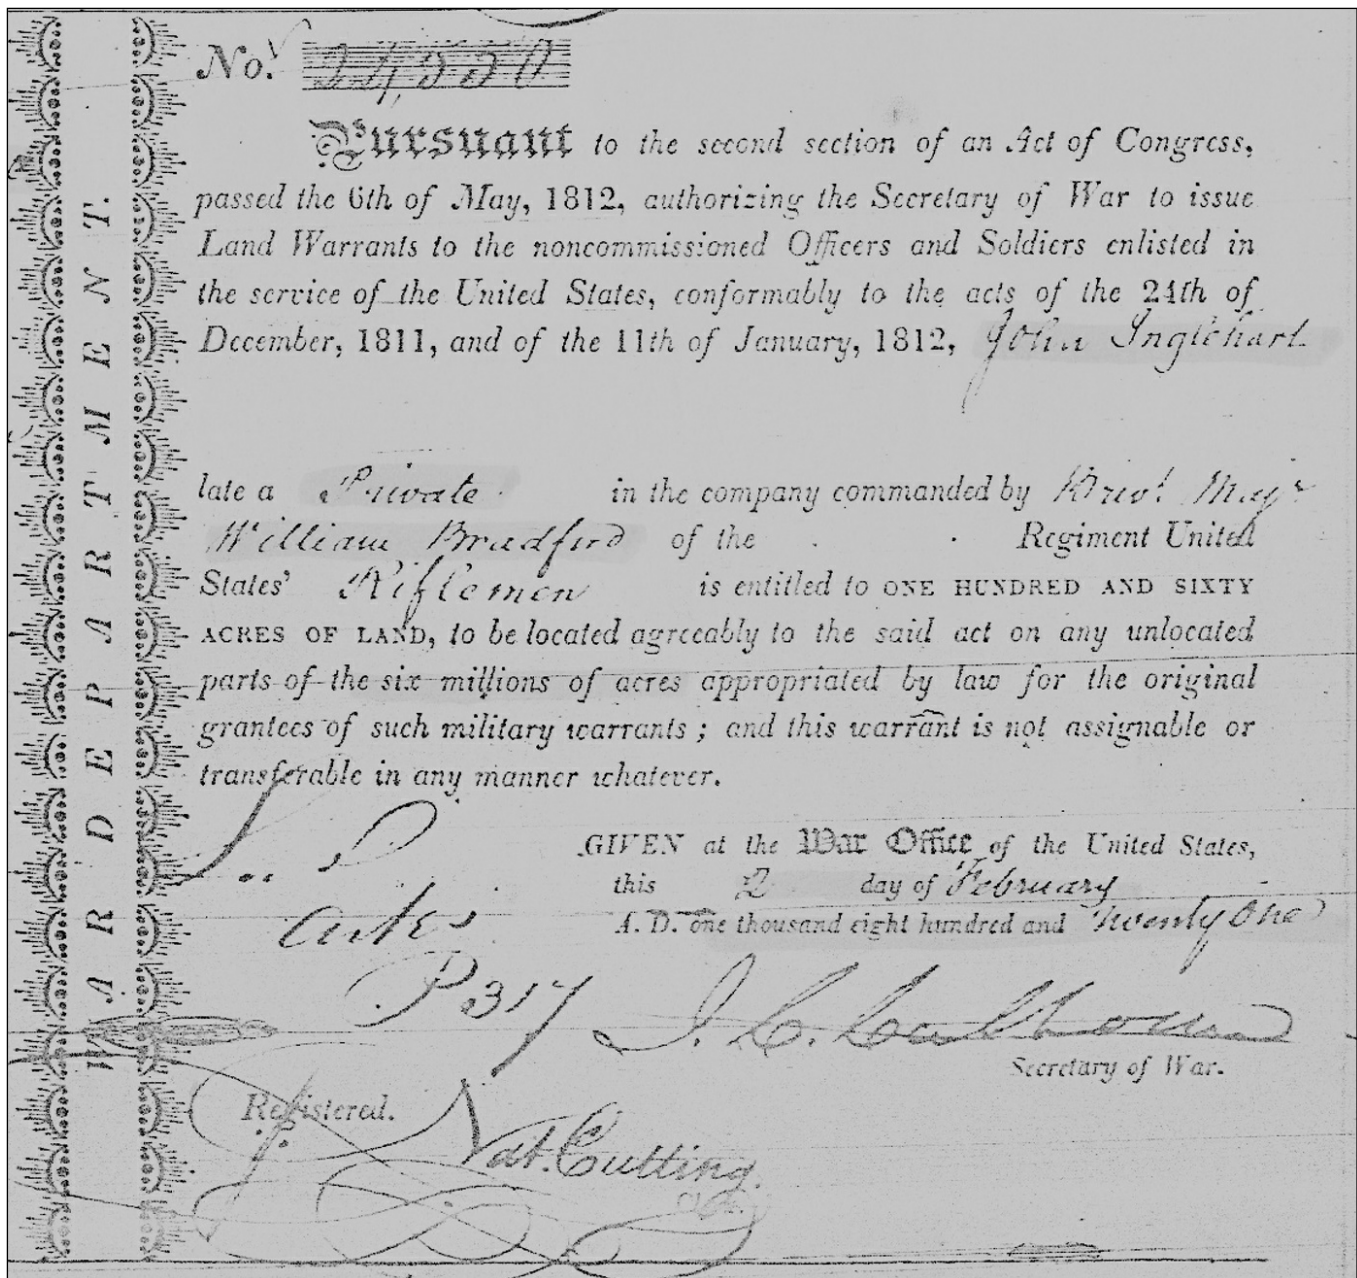 WAR DEPARTMENT.
No. 24550
Pursuant to the second section of an Act of Congress,
passed the 6th of May, 1812, authorizing the Secretary of War to issue
Land Warrants to the noncommissioned Officers and Soldiers enlisted in
the service of the United States, conformably to the acts of the 24th of
December, 1811, and of the 11th of January, 1812, John Inglehart
late a Private in the company commanded by Brevt Majr
William Bradford of the Regiment United
States' Riflemen is entitled to ONE HUNDRED AND SIXTY
ACRES OF LAND, to be located agreeably to the said act on any unlocated
parts of the six millions of acres appropriated by law for the original
grantees of such military warrants; and this warrant is not assignable or
transferable in any manner whatever.
GIVEN at the War Office of the United States,
this 2 day of February
A. D. one thousand eight hundred and Twenty One
Arks
P 317
J. C. Calhoun
Secretary of War.
Registered.
Nat. Cutting